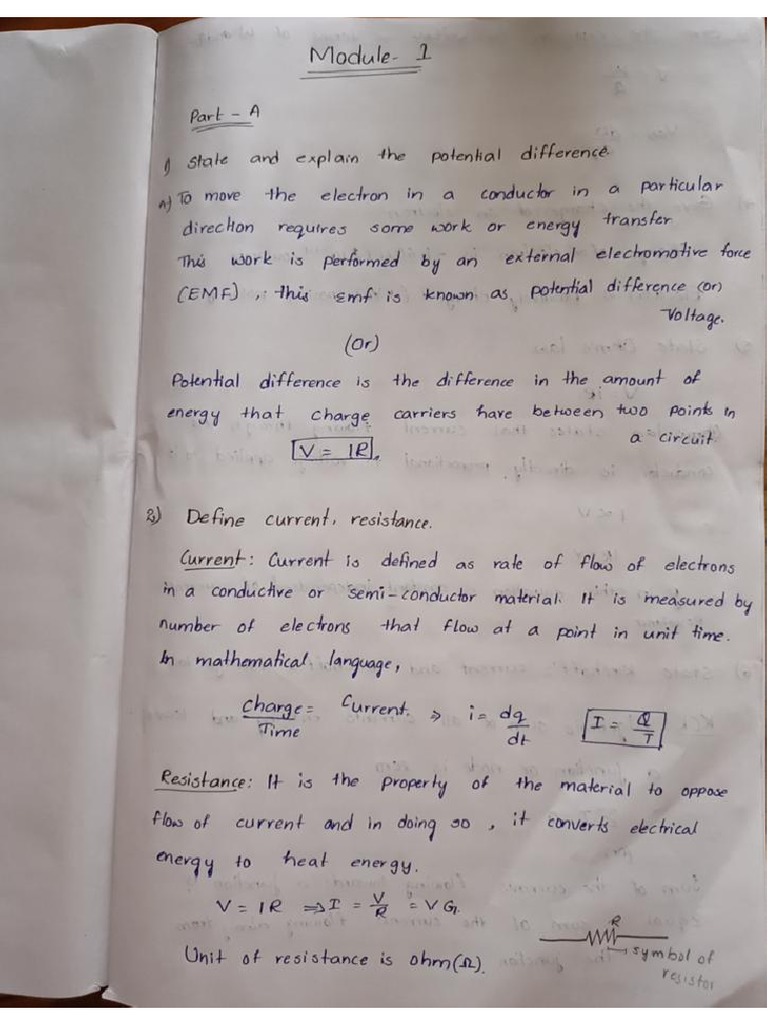 Module - 1
Part - A
1) State and explain the potential difference.
A) To move the electron in a conductor in a particular
direction requires some work or energy transfer
This work is performed by an external electromotive force
(EMF), this emf is known as potential difference (or)
Voltage.
(or)
Potential difference is the difference in the amount of
energy that charge carriers have between two points in
a circuit
V = IR.
2) Define current, resistance.
Current: Current is defined as rate of flow of electrons
in a conductive or semi-conductor material. It is measured by
number of electrons that flow at a point in unit time.
In mathematical language,
Charge/Time = Current. ⇒ i = dq/dt I = Q/T
Resistance: It is the property of the material to oppose
flow of current and in doing so, it converts electrical
energy to heat energy.
V = IR ⇒ I = V/R = VG.
R
Unit of resistance is ohm(Ω).
symbol of
resistor